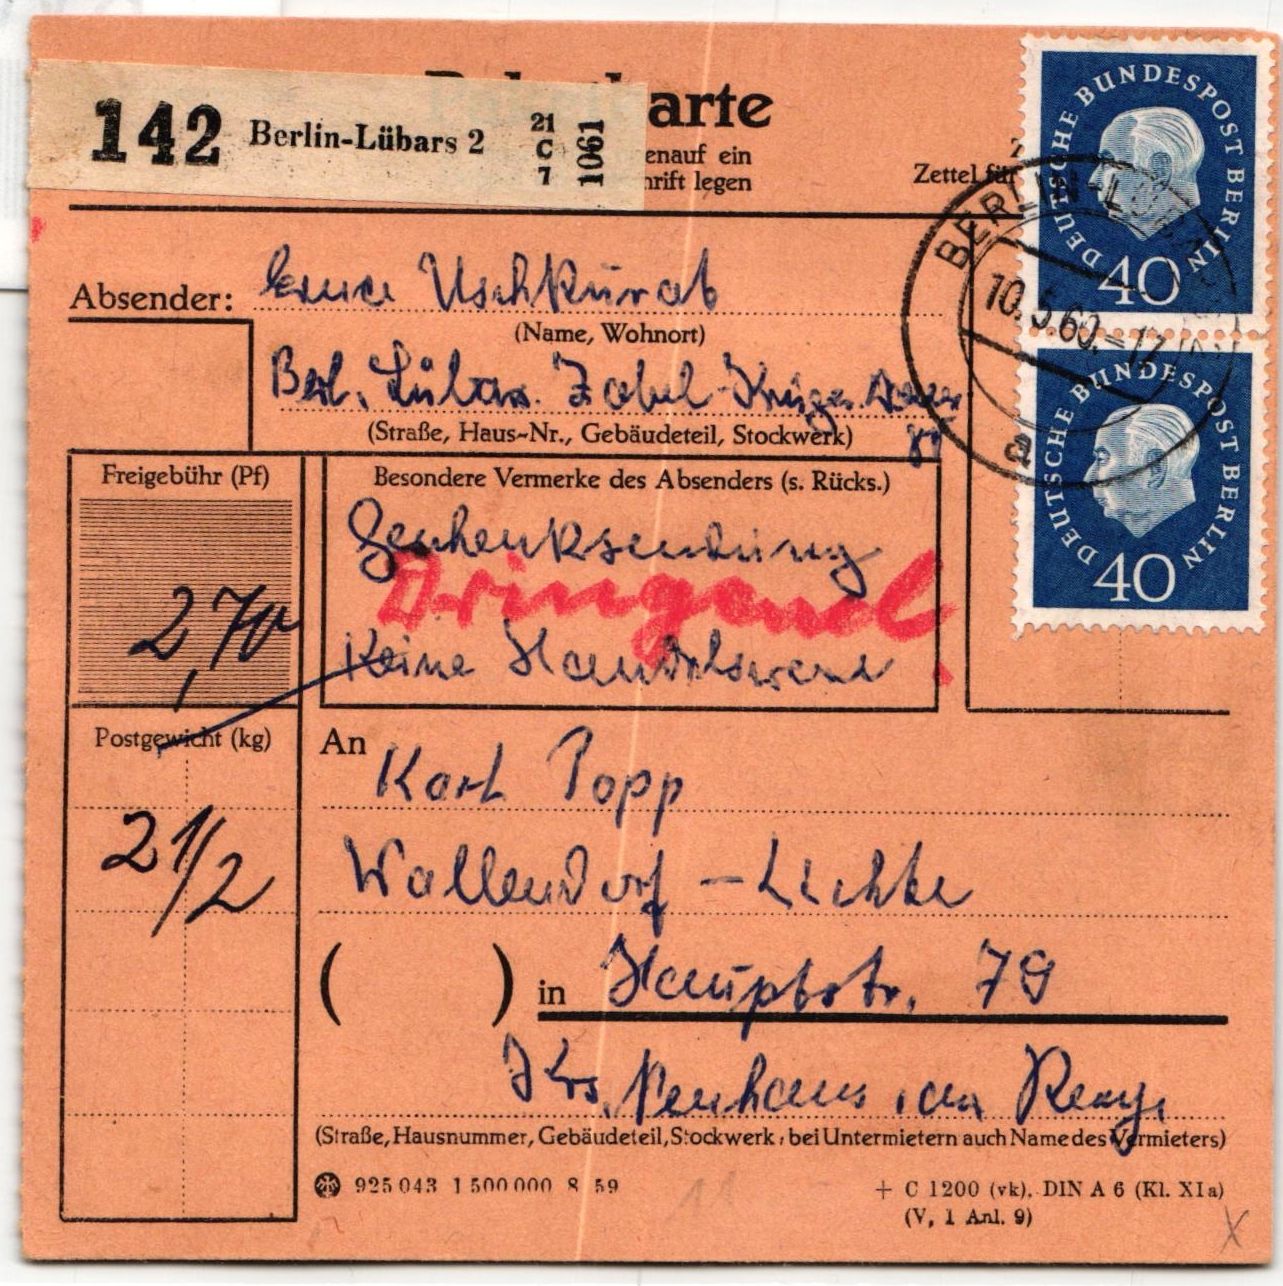 142 Berlin-Lübars 2 21 C 7 1061
arte
enauf ein
hrift legen
Zettel für
DEUTSCHE BUNDESPOST BERLIN
40
BERLIN-LÜBARS
10.5.60.-17
a
DEUTSCHE BUNDESPOST BERLIN
40
Absender: Uschkurat
(Name, Wohnort)
Berl. Lübars. Zabel-Krüger
(Straße, Haus-Nr., Gebäudeteil, Stockwerk)
Freigebühr (Pf)
2,70
Besondere Vermerke des Absenders (s. Rücks.)
Geschenksendung
Dringend
Keine Handelsware
Postgewicht (kg)
2 1/2
An Karl Popp
Wallendorf - Lichte
( ) in Hauptstr. 79
Krs. Neuhaus am Renng.
(Straße, Hausnummer, Gebäudeteil, Stockwerk; bei Untermietern auch Name des Vermieters)
925 043 1 500 000 8 59
+ C 1200 (vk), DIN A 6 (Kl. XIa)
(V, 1 Anl. 9)
X